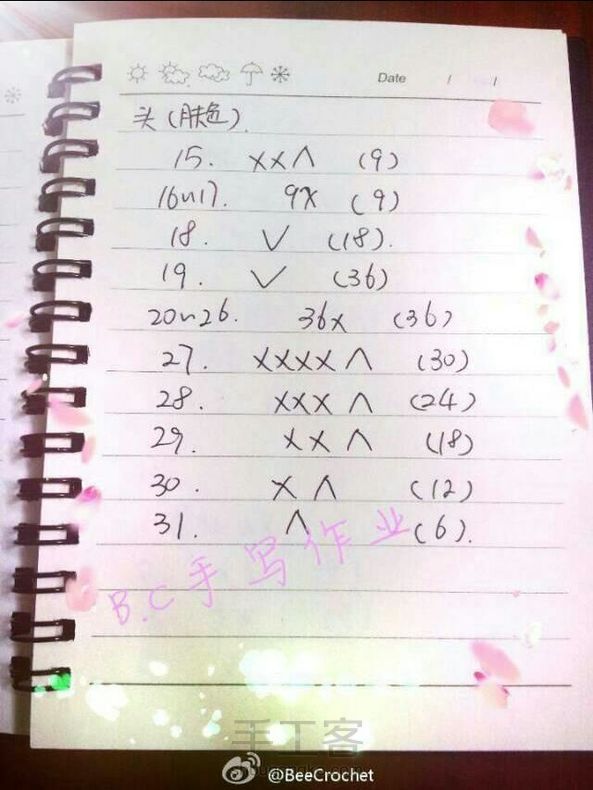 Date / /
头(肤色).
15. XX∧ (9)
16~17. 9X (9)
18. ∨ (18).
19. ∨ (36)
20~26. 36X (36)
27. XXXX∧ (30)
28. XXX∧ (24)
29. XX∧ (18)
30. X∧ (12)
31. ∧ (6).
B.C手写作业
手工客
@BeeCrochet